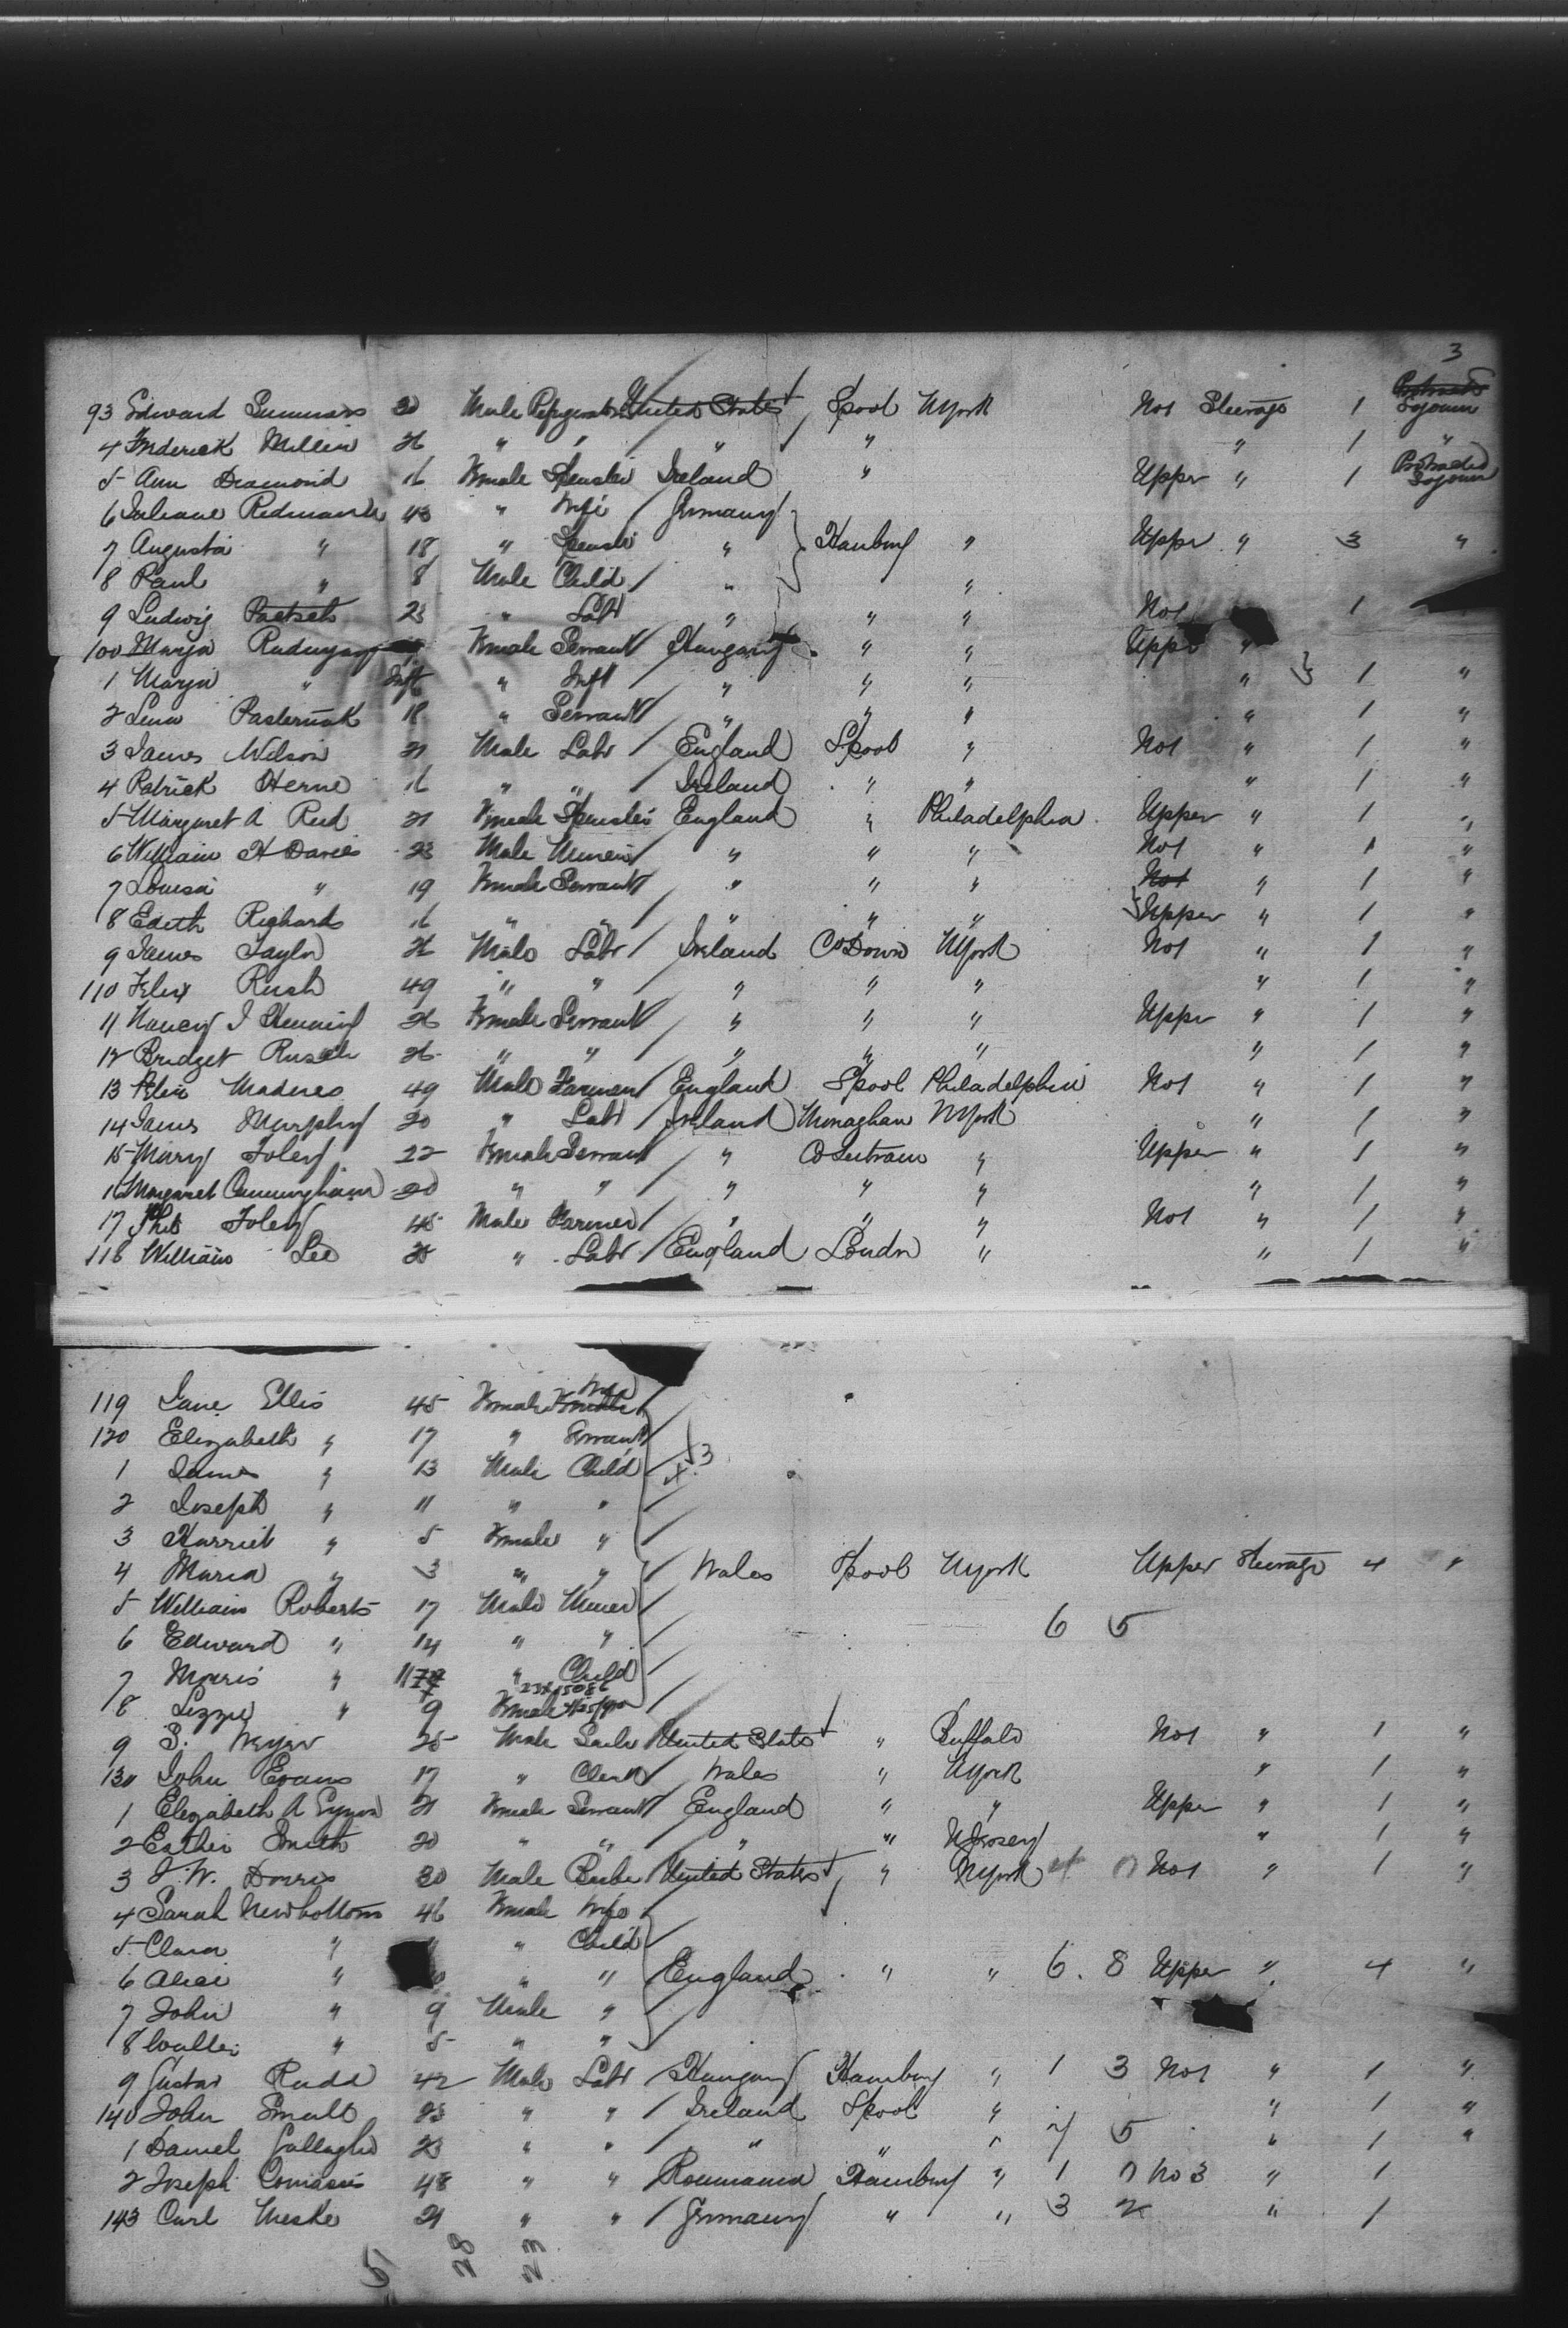 3
93 Edward Summers 30 Male United States Lpool NYork Not Steerage 1 Protracted Sojourn
4 Frederick Millin 26 " " " " " 1 "
5 Ann Diamond 16 Female Spinster Ireland " Upper " 1 Protracted Sojourn
6 Juliane 43 " Wife Germany
7 Augusta " 18 " Spinster " Hamburg " Upper " 3 "
8 Paul " 8 Male Child " "
9 Ludwig 23 " Labr " " " Not 1
100 Marja Female Servant Hungary " " Upper "
1 Marja " Inft " Inft " " " " 1 "
2 Lena Pasternak 18 " Servant " " " " 1 "
3 James Wilson 21 Male Labr England Lpool " Not " 1 "
4 Patrick Herne 16 " " Ireland " " " 1 "
5 Margaret A Reed 21 Female Spinster England " Philadelphia Upper " 1 "
6 William H Davies 23 Male Miner " " " Not " 1 "
7 Louisa " 19 Female Servant " " " Not " 1 "
8 Edith Richards 16 " " " " " Upper " 1 "
9 James Taylor 26 Male Labr Ireland Co Down NYork Not " 1 "
110 Felix Rush 49 " " " " " " 1 "
11 Nancy J 26 Female Servant " " " Upper " 1 "
12 Bridget 26 " " " " " " 1 "
13 49 Male Farmer England Lpool Philadelphia Not " 1 "
14 James Murphy 20 " Labr Ireland Monaghan NYork " 1 "
15 Mary Foley 22 Female Servant " Co Leitram " Upper " 1 "
16 Margaret Cunningham 20 " " " " " " 1 "
17 Foley 45 Male Farmer " " " Not " 1 "
118 William Lee 25 " Labr England London " " 1 "
119 Jane Ellis 45 Female Wife
120 Elizabeth " 17 " Servant
1 James " 13 Male Child X3
2 Joseph " 11 " "
3 Harriet " 5 Female "
4 Maria " 3 " " Wales Lpool NYork Upper Steerage 4 "
5 William Roberts 17 Male Miner 6 5
6 Edward " 14 " "
7 Morris " 11 " Child
8 Lizzie " 9 Female
9 S. 25 Male United States " Buffalo Not " 1 "
130 John Evans 17 " Clerk Wales " NYork " 1 "
1 Elizabeth A 21 Female Servant England " " Upper " 1 "
2 Esther Smith 20 " " " " NJersey " 1 "
3 J. W. 30 Male United States " NYork Not " 1 "
4 Sarah Newbottom 46 Female Wife
5 Clara " " Child
6 Alice " " " England " " 6. 8 Upper " 4 "
7 John " 9 Male "
8 " 5 " "
9 Gustav 42 Male Labr Hungary Hamburg " 1 3 Not " 1 "
140 John 23 " " Ireland Lpool " " 1 "
1 Daniel Gallagher 23 " " " " " 7 5 " 1 "
2 Joseph 48 " " Roumania Hamburg " 1 No 3 " 1
143 Carl Meske 21 " " Germany " " 3 2 " 1
5 28 23